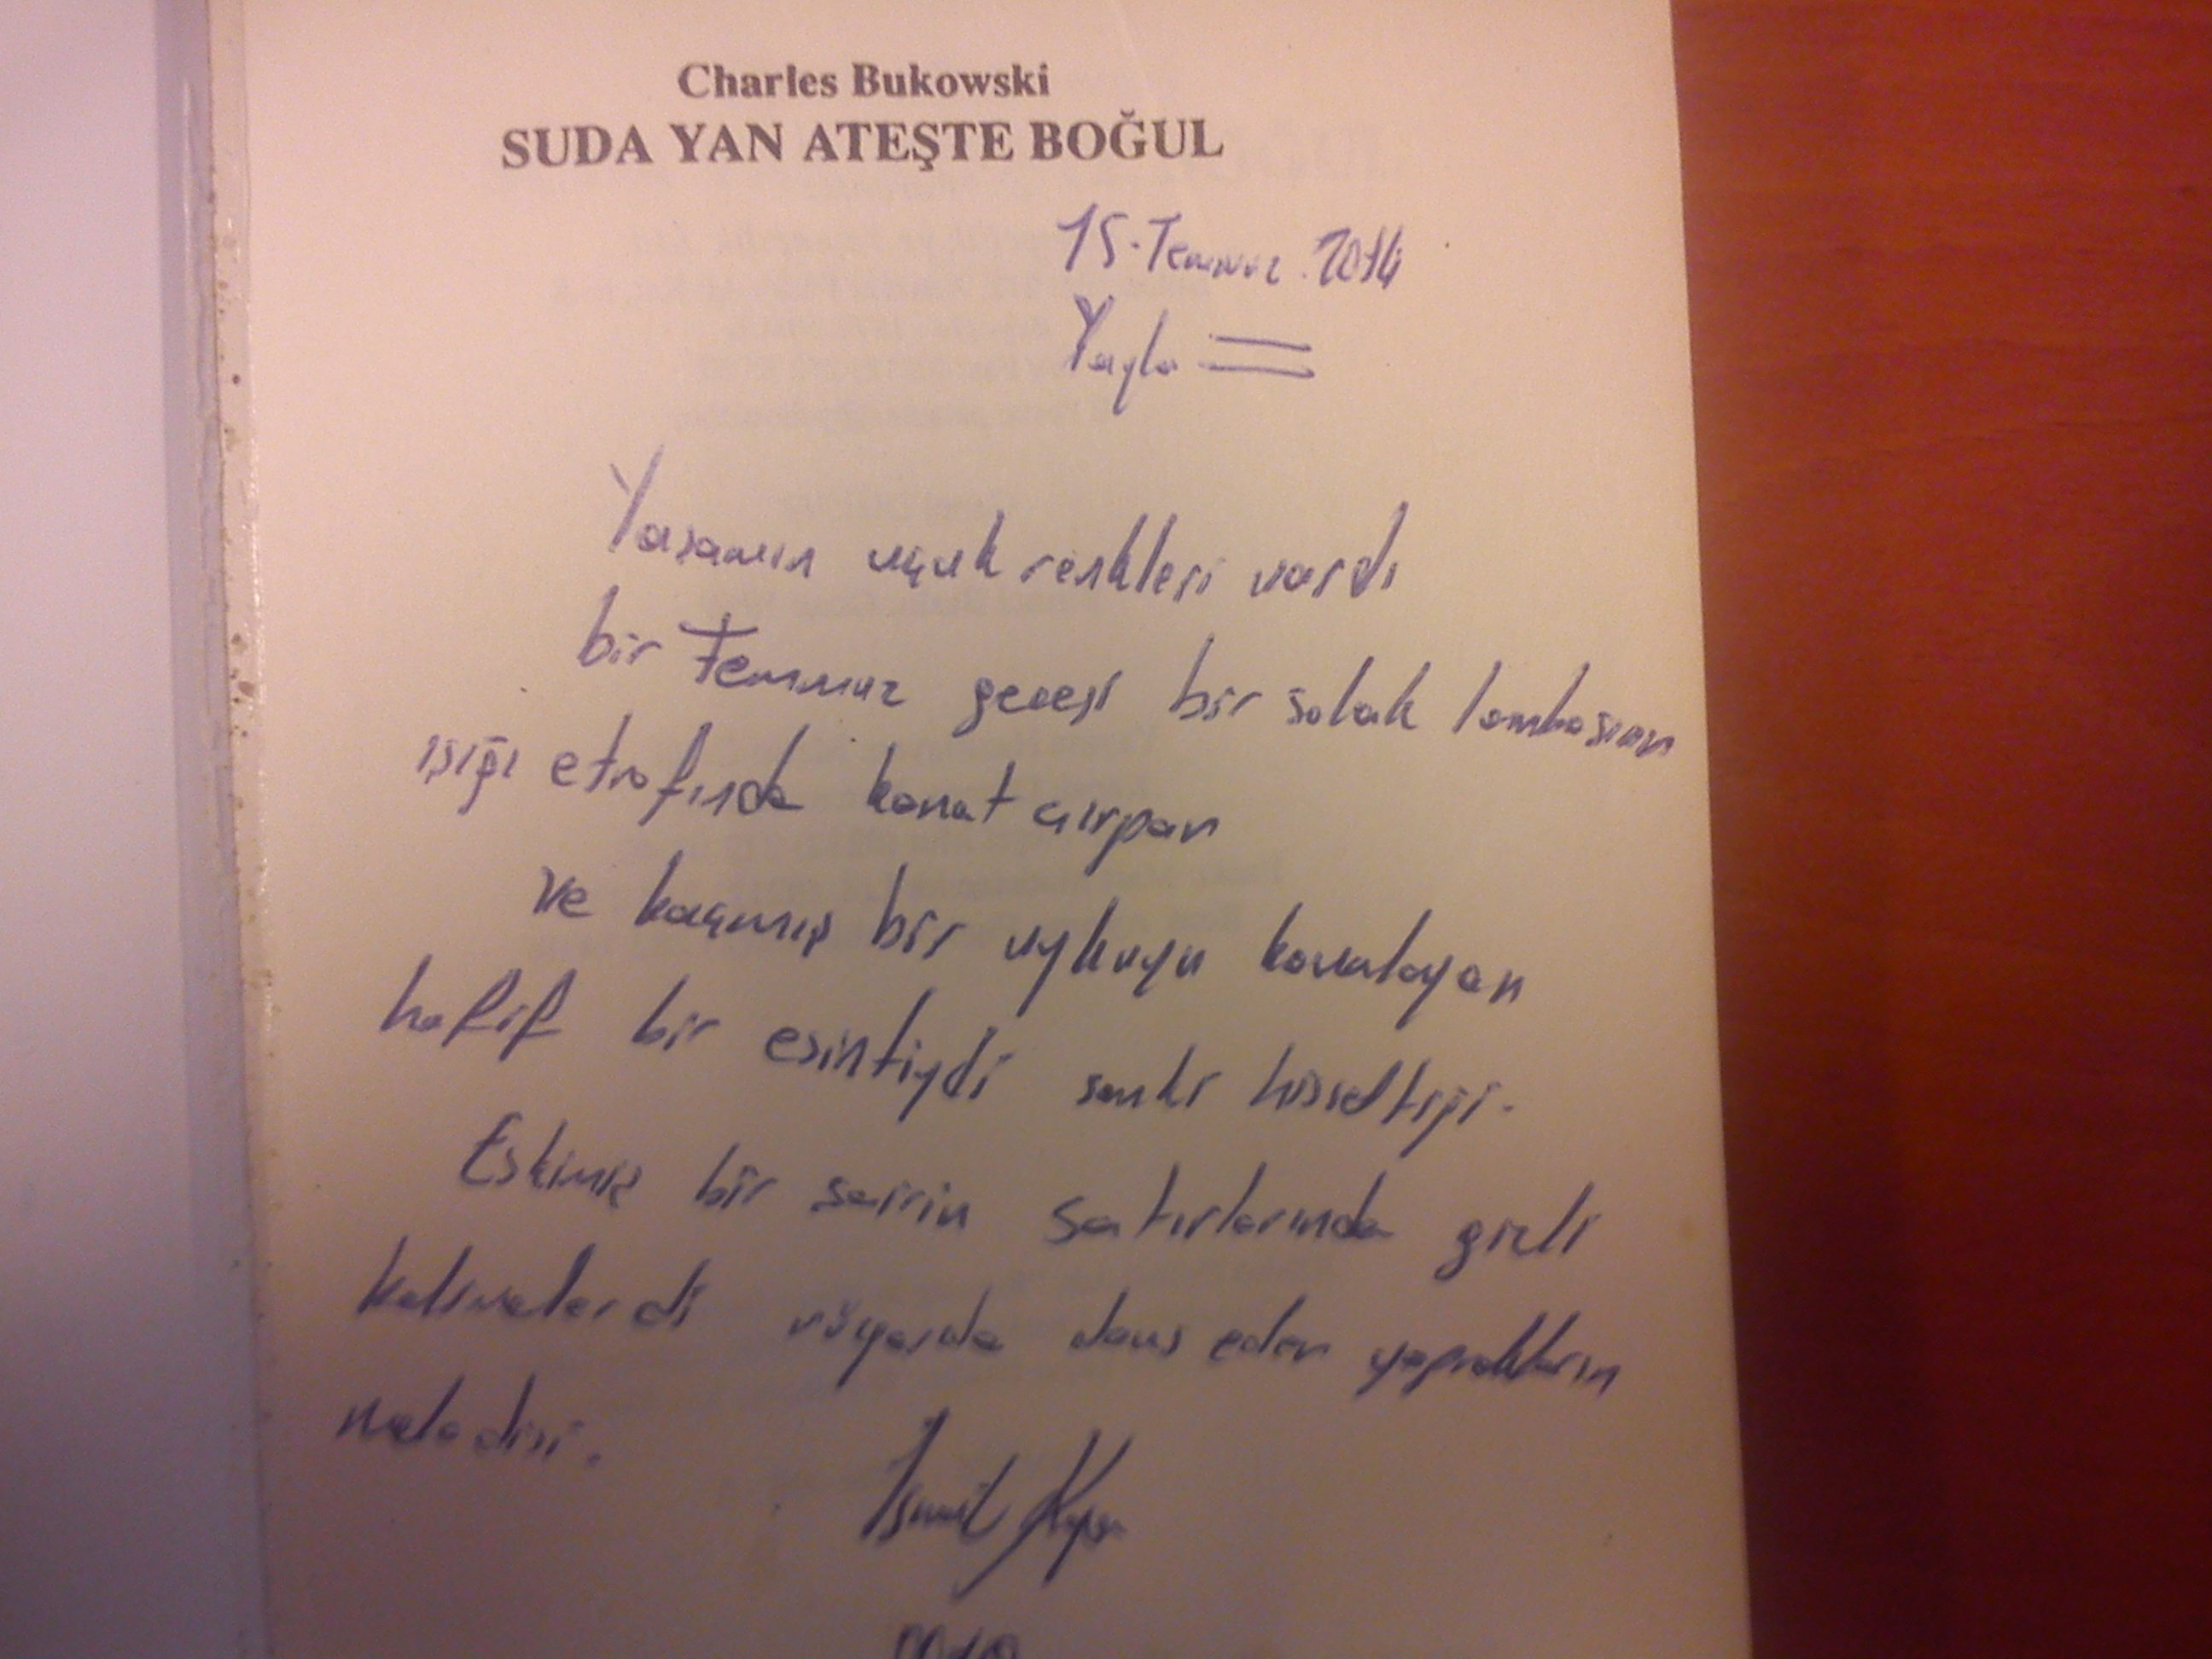 Charles Bukowski
SUDA YAN ATEŞTE BOĞUL
15.Temmuz.2014
Yayla
Yaşamın uçuk renkleri vardı
bir Temmuz gecesi bir sokak lambasının
ışığı etrafında kanat çırpan
ve kaçmış bir uykuyu kovalayan
hafif bir esintiydi sanki hissettiği.
Eskimiş bir şairin satırlarında gizli
kelimelerdi rüyada dans eden yaprakların
melodisi.
İsmail